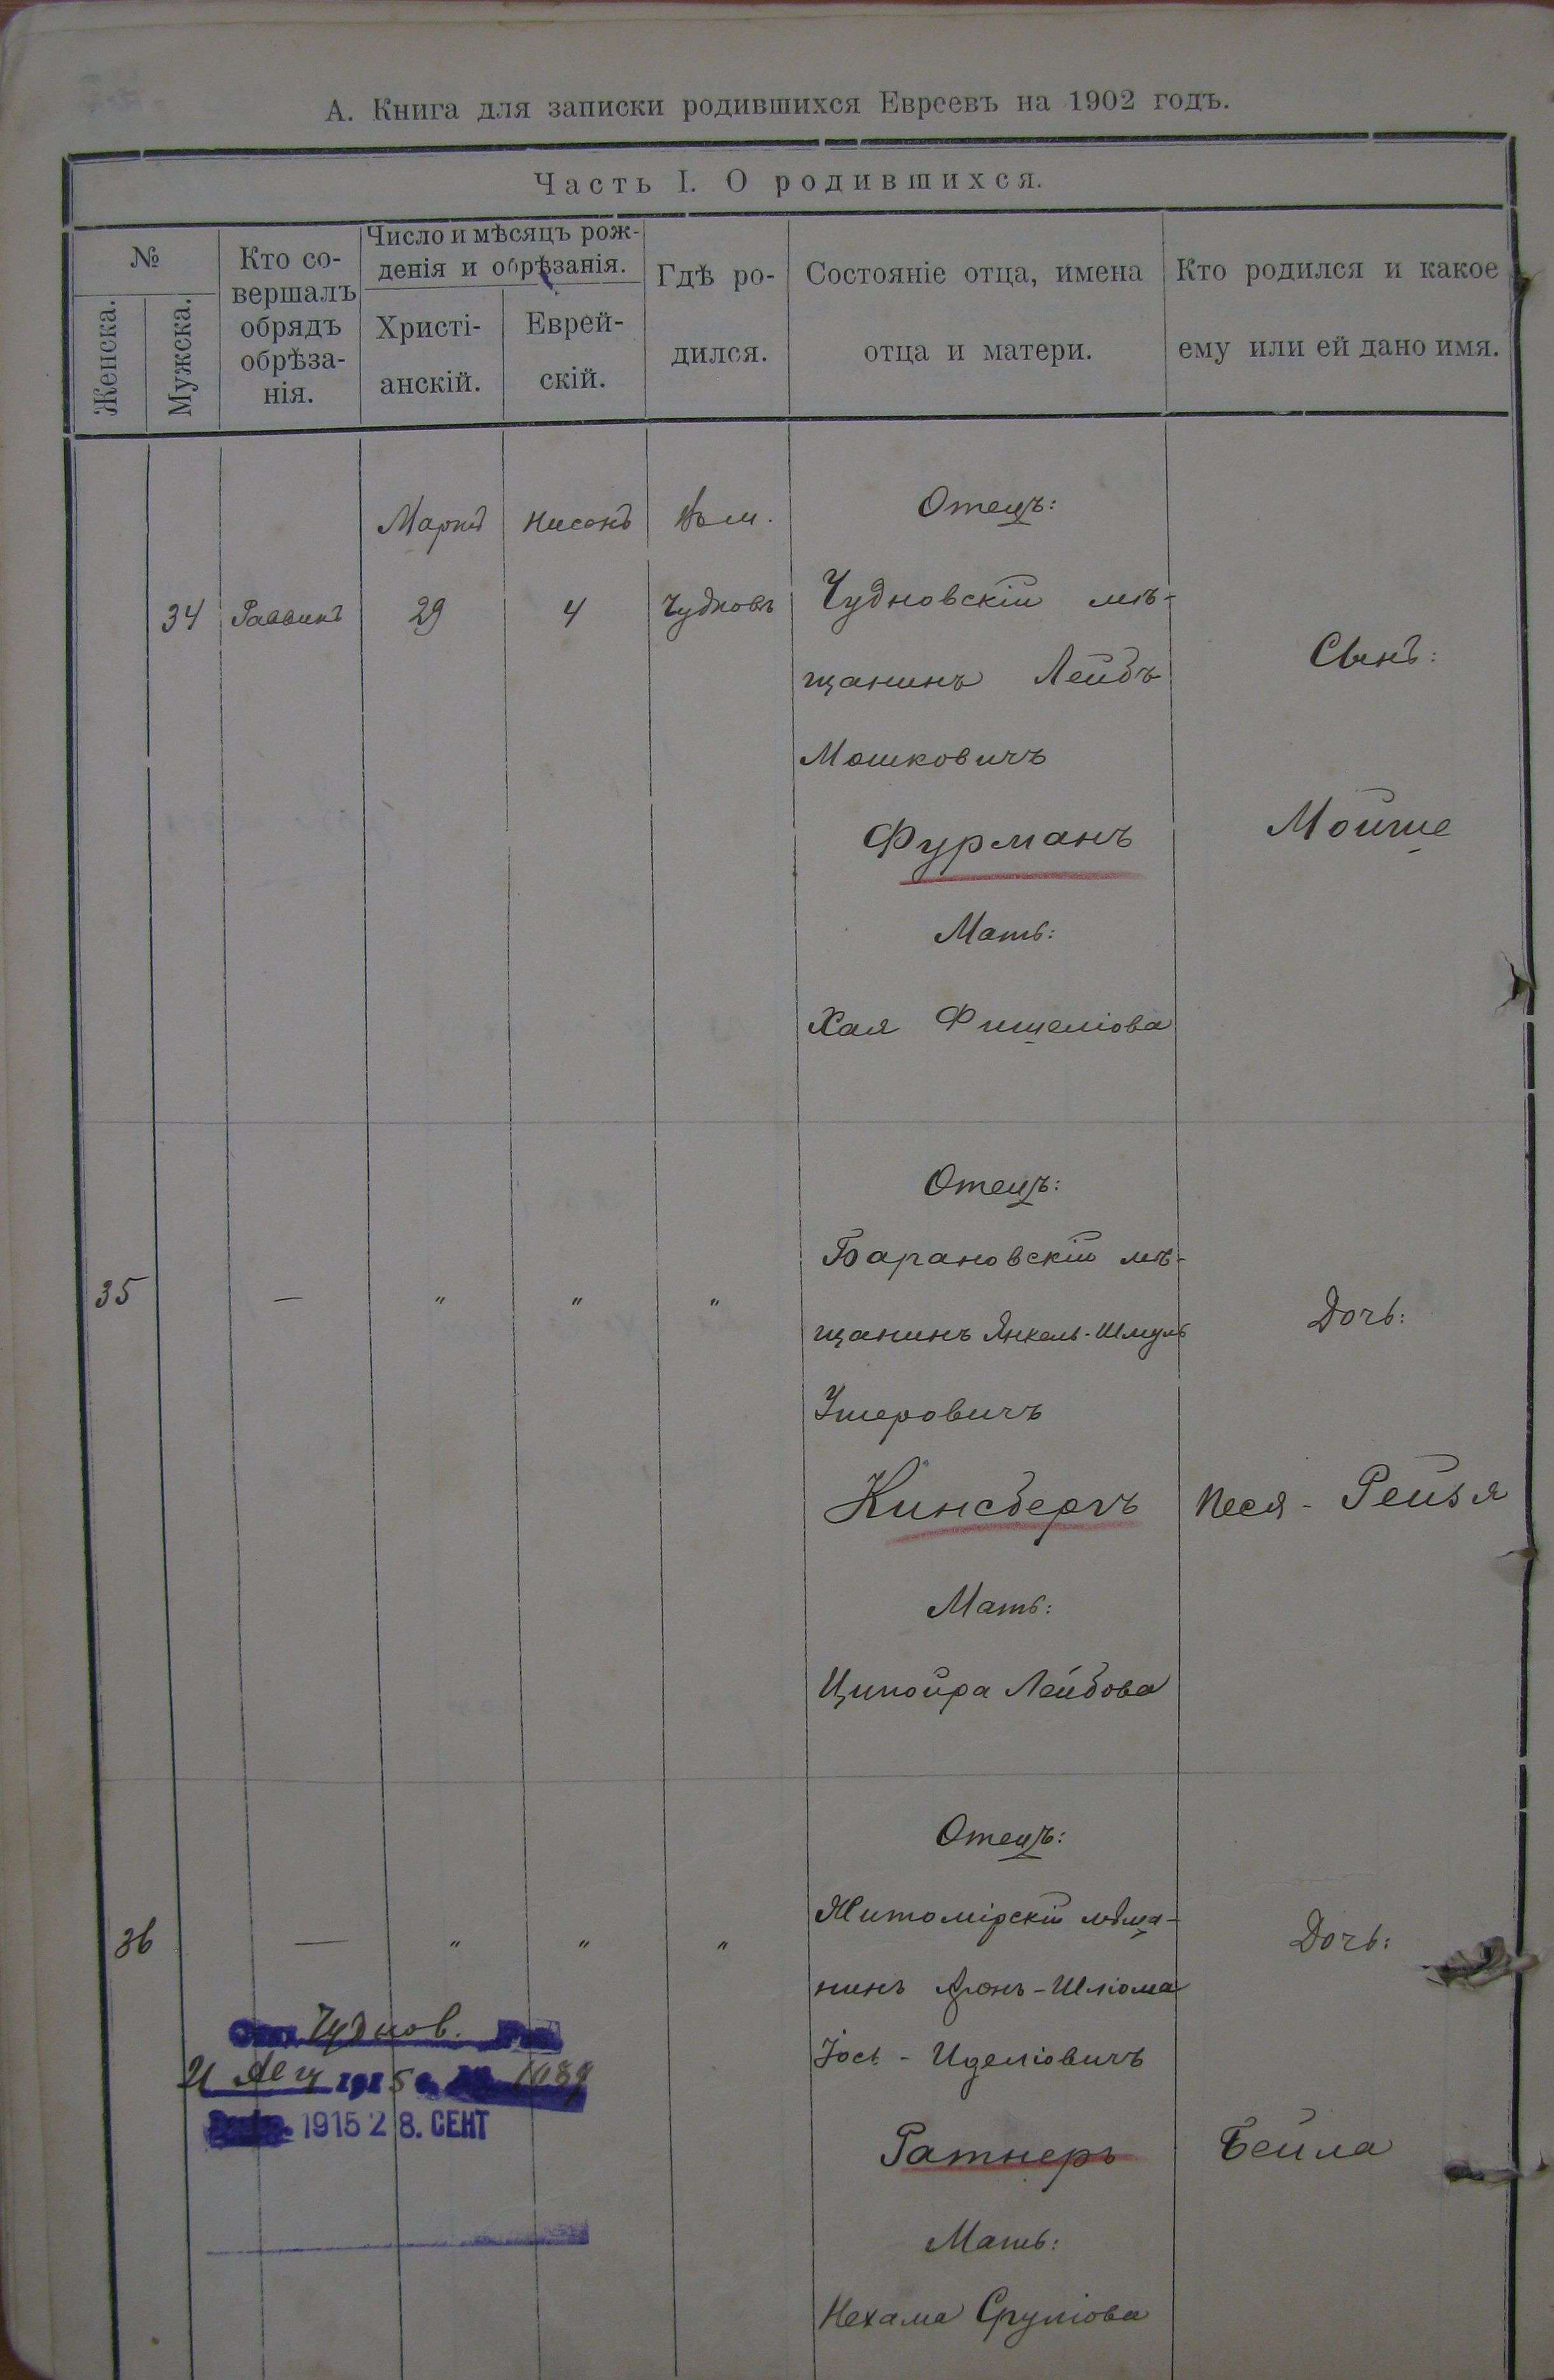 А. Книга для записки родившихся Евреевъ на 1902 годъ.
Часть I. О родившихся.
№
Женска.
Мужска.
Кто со-
вершалъ
обрядъ
обрѣза-
нія.
Число и мѣсяцъ рож-
денія и обрѣзанія.
Христі-
анскій.
Еврей-
скій.
Гдѣ ро-
дился.
Состояніе отца, имена
отца и матери.
Кто родился и какое
ему или ей дано имя.
34
Раввинъ
Мартъ
29
Нисонъ
4
Въ м.
Чудновъ
Отецъ:
Чудновскій мѣ-
щанинъ Лейбъ
Мошковичъ
Фурманъ
Мать:
Хая Фишеліова
Сынъ:
Мойше
35
—
"
"
"
Отецъ:
Барановскій мѣ-
щанинъ Янкель-Шмуль
Ушеровичъ
Кинсбергъ
Мать:
Ципойра Лейбова
Дочь:
Песя - Рейзя
36
—
"
"
"
Отецъ:
Житомірскій мѣща-
нинъ Аронъ-Шліома
Іось - Иделіовичъ
Ратнеръ
Мать:
Нехама Сруліова
Дочь:
Бейла
Чуднов.
21 1915
1915 28. СЕНТ